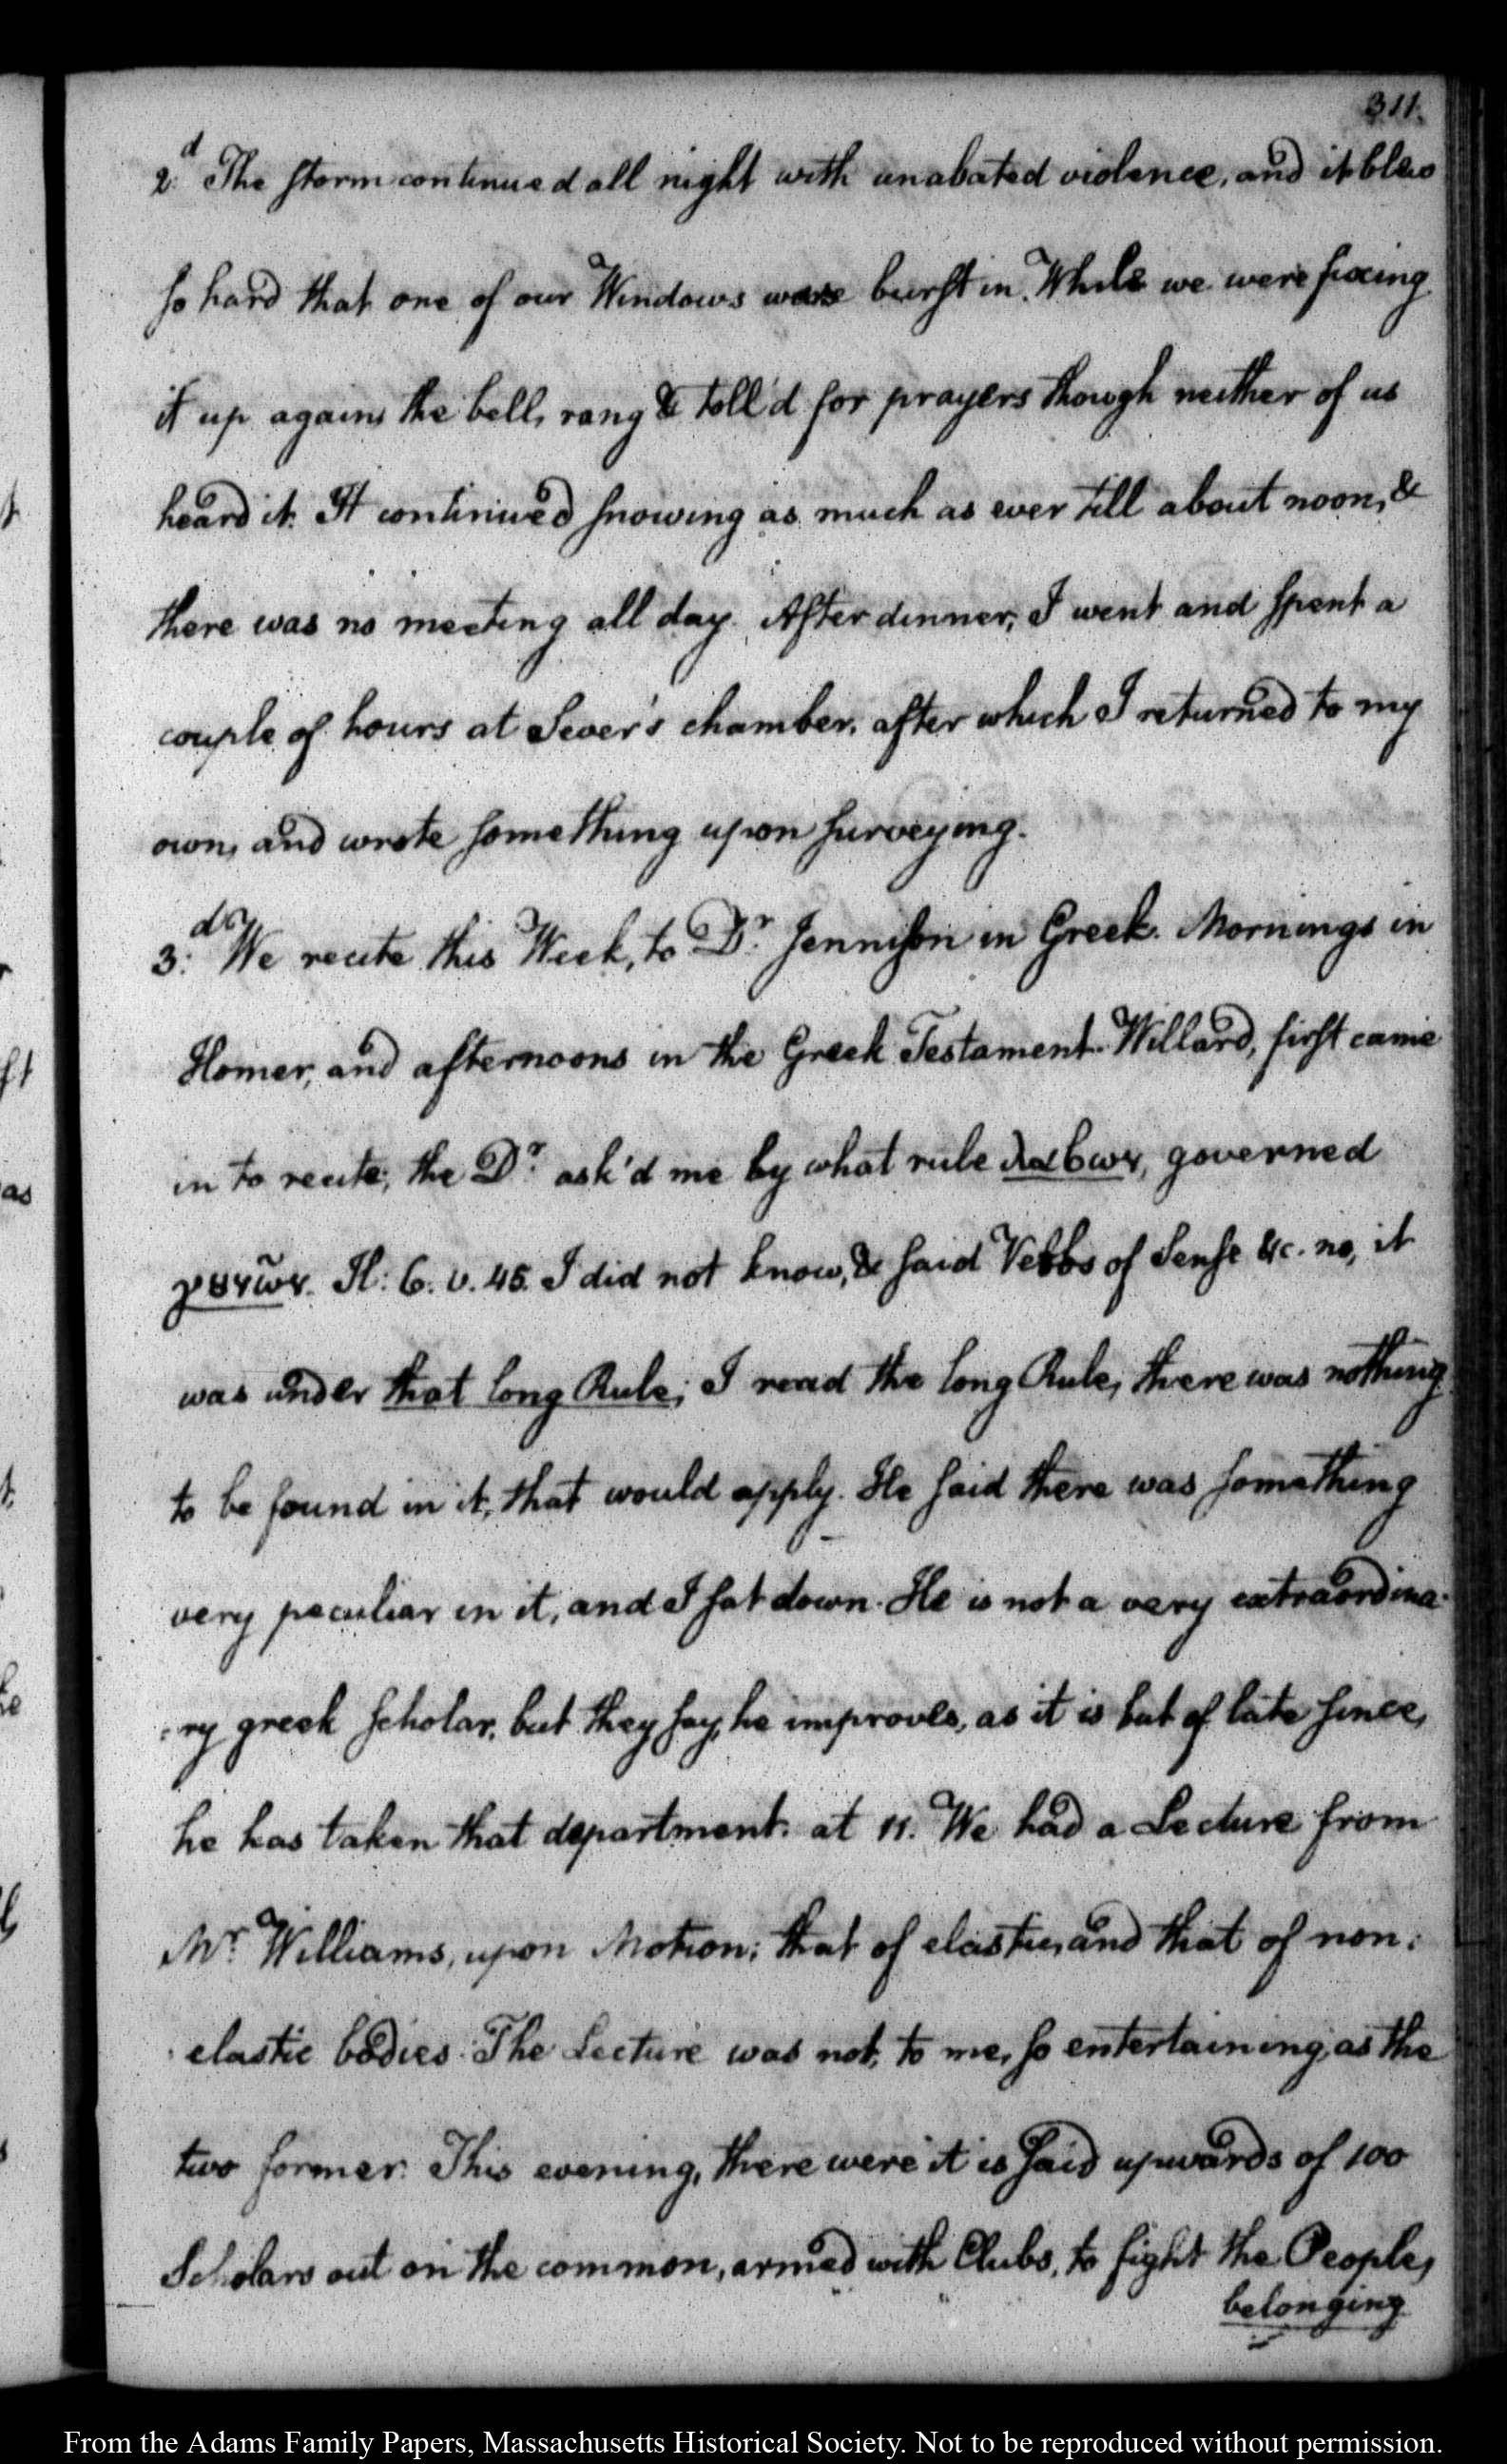 311.
2.d The storm continued all night with unabated violence, and it blew
so hard that one of our Windows were burst in. While we were fixing
it up again, the bell, rang & toll'd for prayers though neither of us
heard it. It continued snowing as much as ever till about noon, &
there was no meeting all day. After dinner, I went and spent a
couple of hours at Sever's chamber, after which I returned to my
own, and wrote something upon surveying.
3.d We recite this Week, to Dr. Jennison in Greek. Mornings in
Homer, and afternoons in the Greek Testament. Willard, first came
in to recite; the Dr. ask'd me by what rule λαβων, governed
γȣνῶν. Il: 6. v. 45. I did not know, & said Verbs of Sense &c. no, it
was under that long Rule; I read the long Rule, there was nothing
to be found in it, that would apply. He said there was something
very peculiar in it, and I sat down. He is not a very extraordina-
-ry greek scholar, but they say, he improves, as it is but of late since,
he has taken that department. at 11. We had a Lecture from
Mr. Williams, upon Motion; that of elastic, and that of non:
elastic bodies. The Lecture was not, to me, so entertaining, as the
two former. This evening, there were it is said upwards of 100
Scholars out on the common, armed with Clubs, to fight the People,
belonging
From the Adams Family Papers, Massachusetts Historical Society. Not to be reproduced without permission.